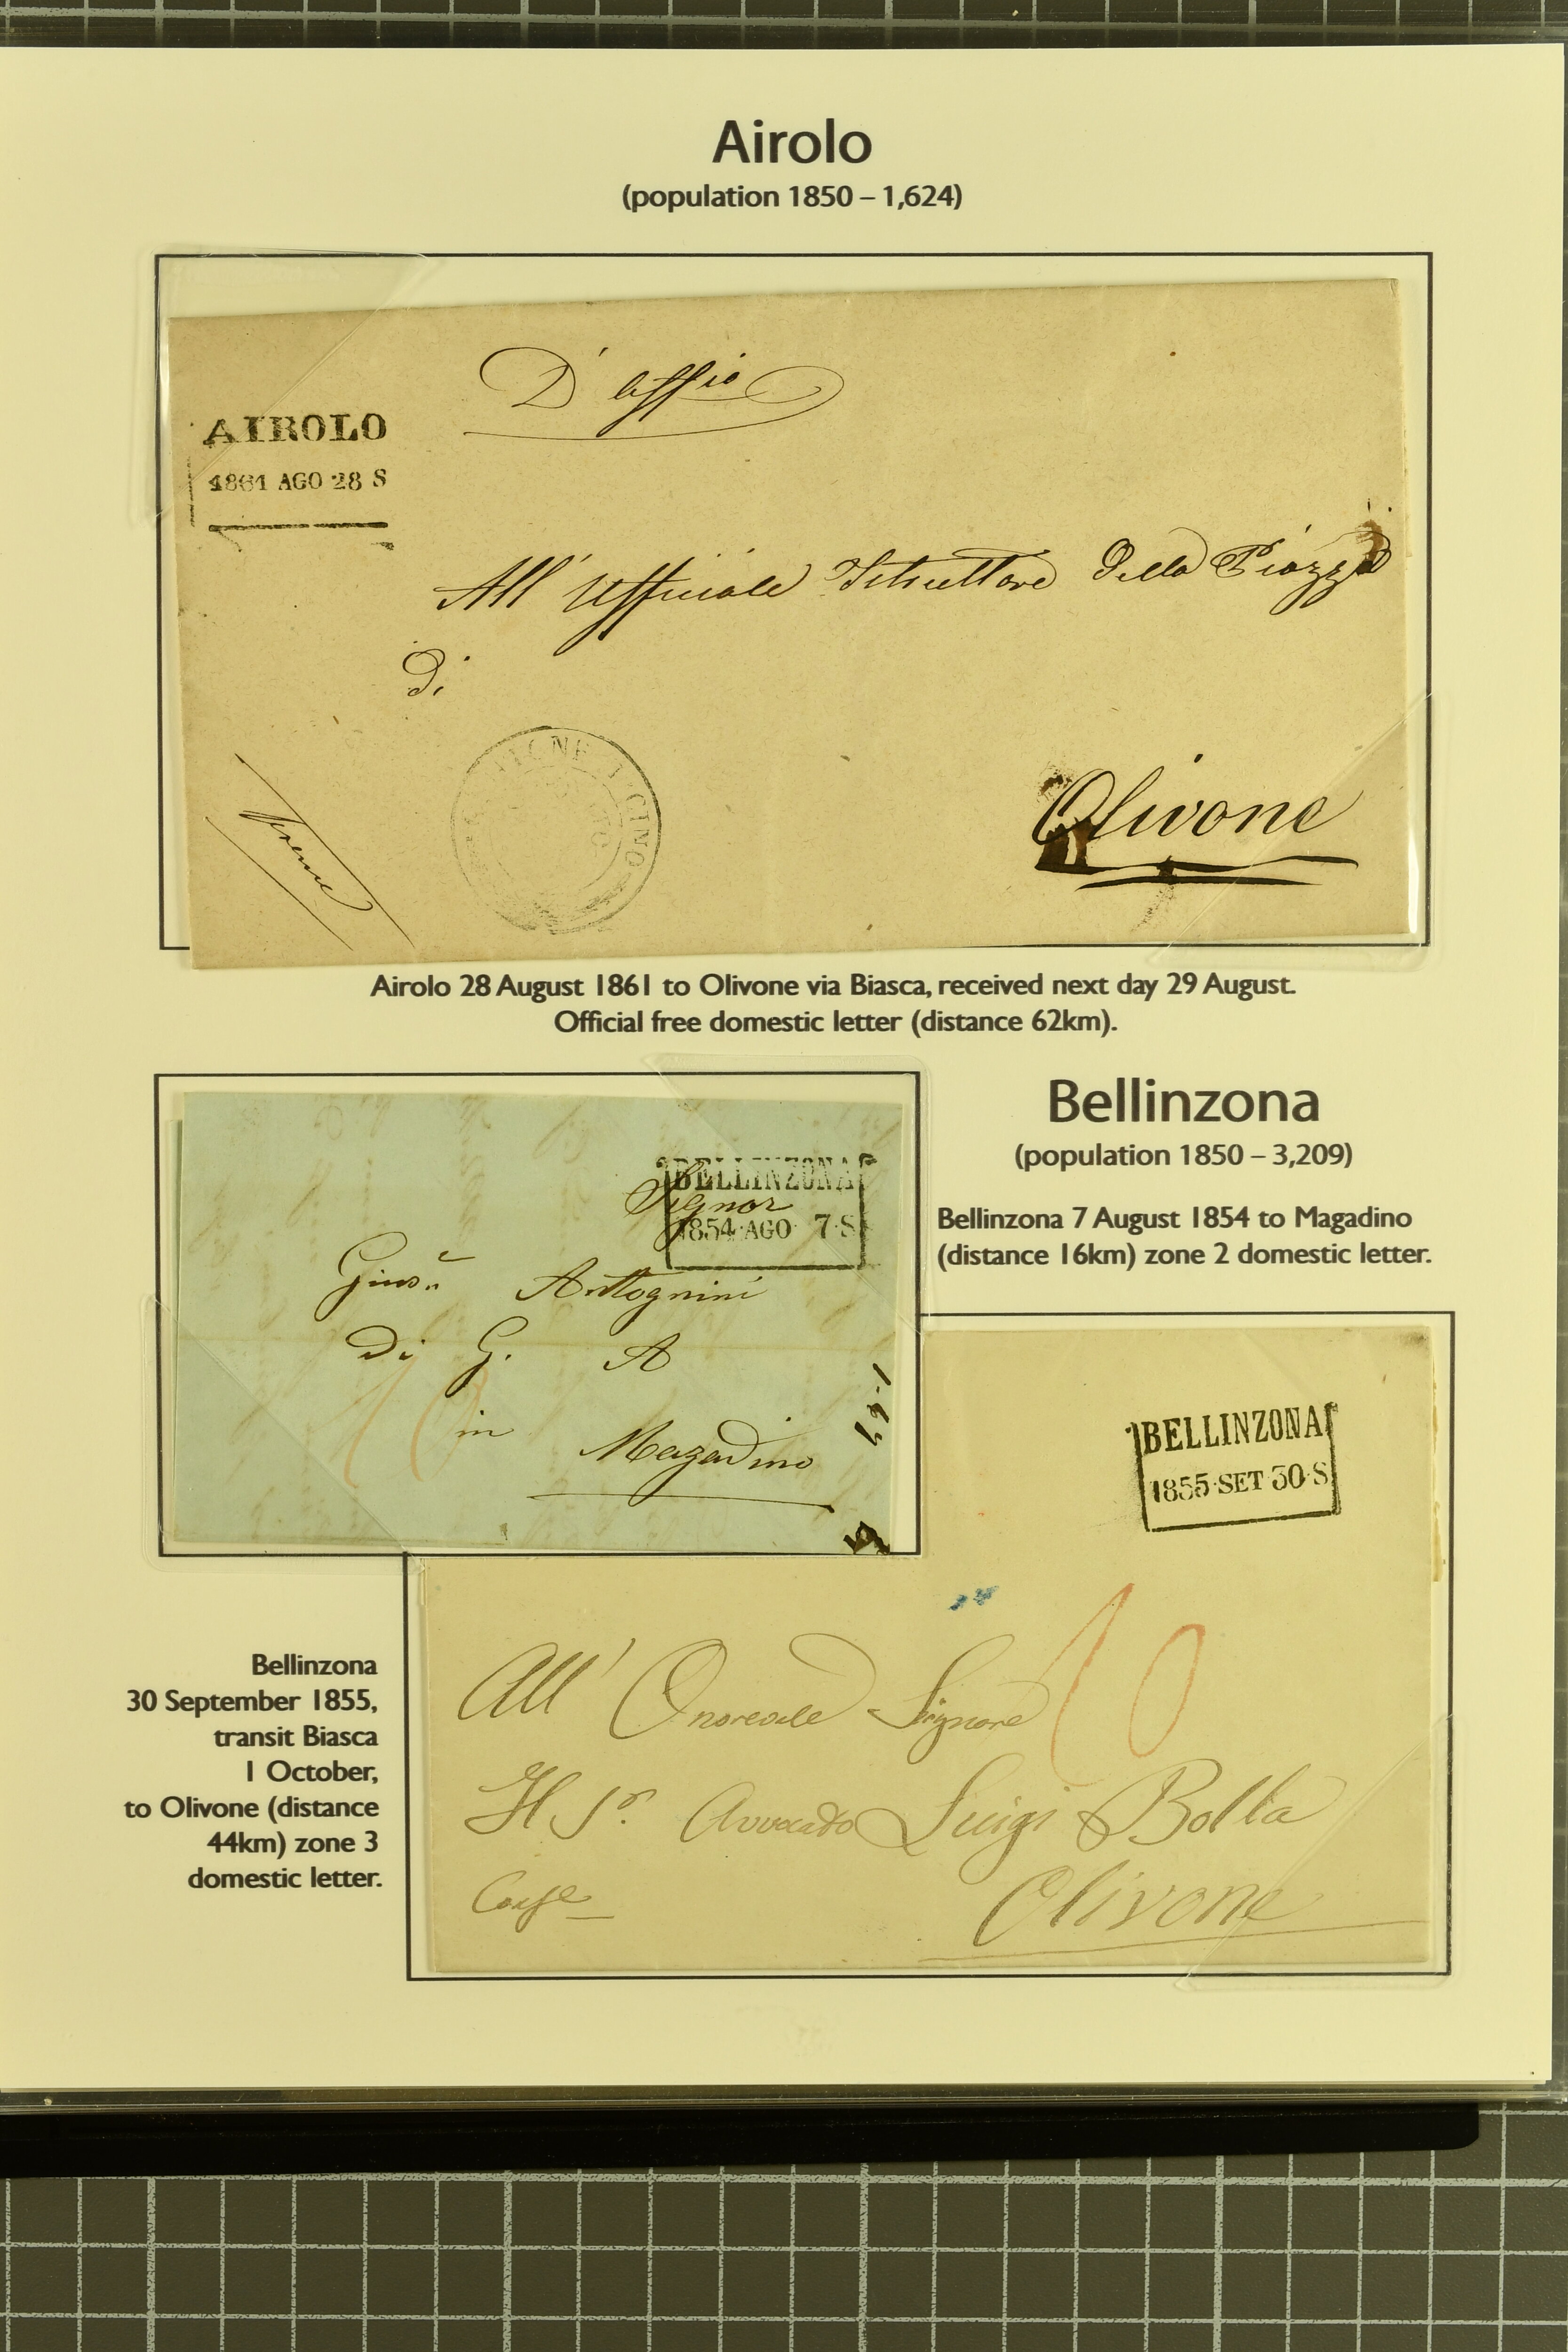 Airolo
(population 1850 – 1,624)
D'uffio
AIROLO
1861 AGO 28 S
All' Ufficiale Istruttore Della Piazza
Di
Olivone
Airolo 28 August 1861 to Olivone via Biasca, received next day 29 August.
Official free domestic letter (distance 62km).
Bellinzona
(population 1850 – 3,209)
Bellinzona 7 August 1854 to Magadino
(distance 16km) zone 2 domestic letter.
BELLINZONA
Signor
1854 AGO 7 S
Antognini
Di G. A
10
in Magadino
BELLINZONA
1855 SET 30 S
10
All' Onorevole Signore
Il Sr. Avvocato Luigi Bolla
Olivone
Bellinzona
30 September 1855,
transit Biasca
1 October,
to Olivone (distance
44km) zone 3
domestic letter.